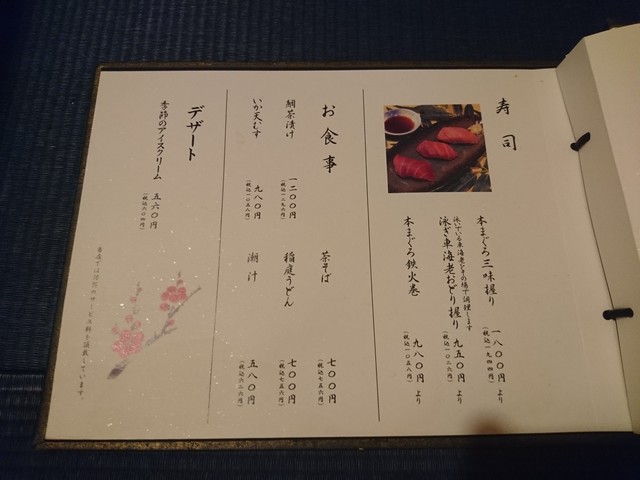 寿司
本まぐろ三味握り
一八〇〇円より
(税込一九四四円)
泳いでいる車海老をその場で調理します
泳ぎ車海老おどり握り
九五〇円より
(税込一〇二六円)
本まぐろ鉄火巻
九八〇円より
(税込一〇五八円)
お食事
茶そば
七〇〇円
(税込七五六円)
鯛茶漬け
一二〇〇円
(税込一二九六円)
稲庭うどん
七〇〇円
(税込七五六円)
いか天むす
九八〇円
(税込一〇五八円)
潮汁
五八〇円
(税込六二六円)
デザート
季節のアイスクリーム
五六〇円
(税込六〇四円)
当店では別途のサービス料を頂戴しています。